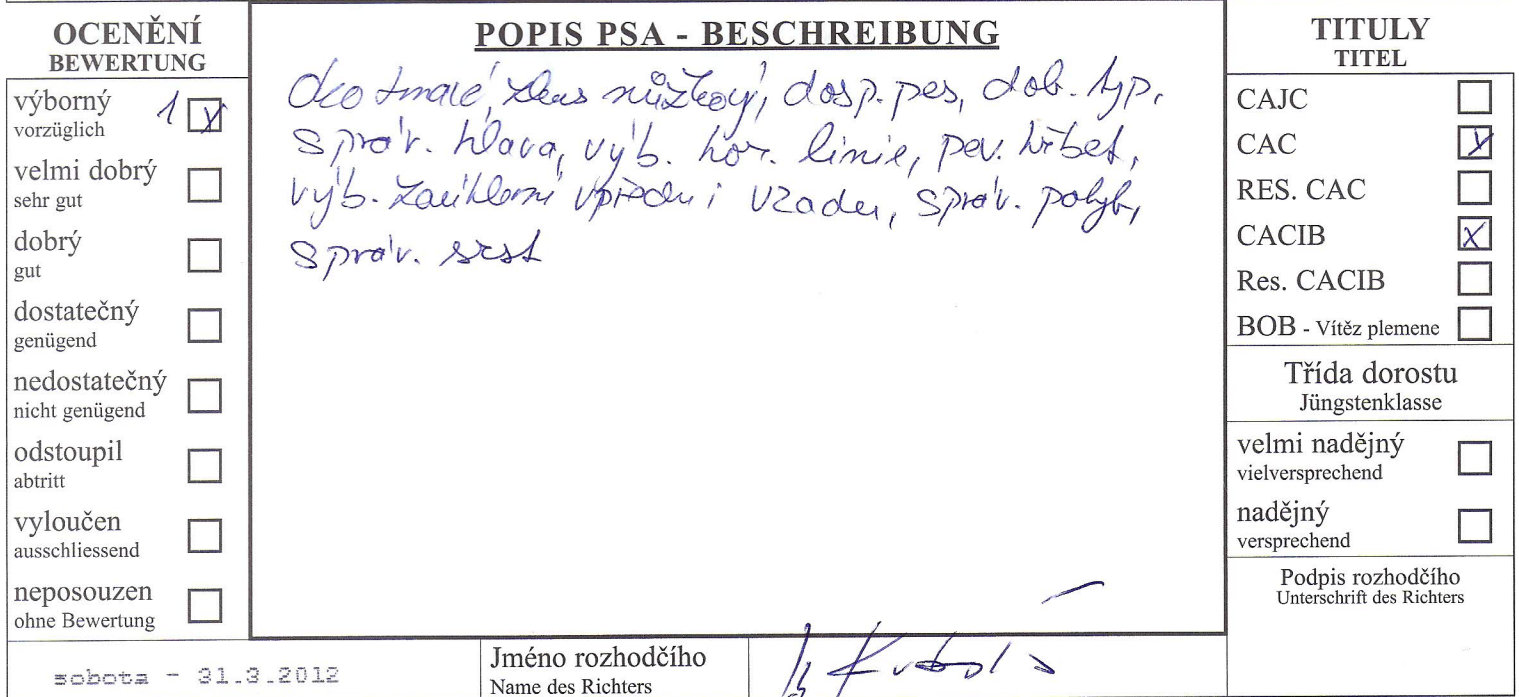 OCENĚNÍ
BEWERTUNG
výborný 1 x
vorzüglich
velmi dobrý
sehr gut
dobrý
gut
dostatečný
genügend
nedostatečný
nicht genügend
odstoupil
abtritt
vyloučen
ausschliessend
neposouzen
ohne Bewertung
sobota - 31.3.2012
POPIS PSA - BESCHREIBUNG
oko tmavé, zkus nůžkový, dosp. pes, dob. typ,
správ. hlava, výb. hor. linie, pev. hřbet,
výb. zaúhlení vpředu i vzadu, správ. pohyb,
správ. srst
Jméno rozhodčího
Name des Richters
TITULY
TITEL
CAJC
CAC x
RES. CAC
CACIB x
Res. CACIB
BOB - Vítěz plemene
Třída dorostu
Jüngstenklasse
velmi nadějný
vielversprechend
nadějný
versprechend
Podpis rozhodčího
Unterschrift des Richters